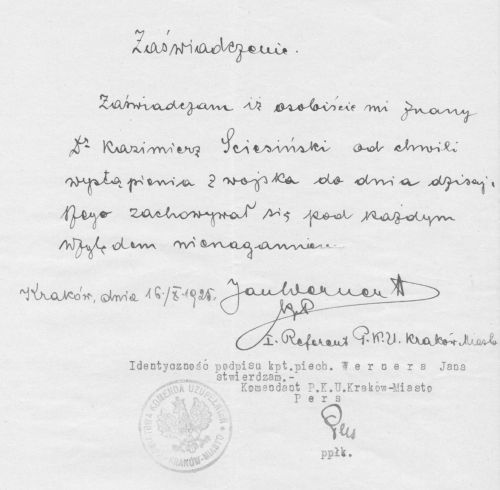 Zaświadczenie.
Zaświadczam iż osobiście mi znany
Dr Kazimierz Sciesiński od chwili
wystąpienia z wojska do dnia dzisiej-
szego zachowywał się pod każdym
względem nienagannie.
Kraków, dnia 16/X 1925. Jan Werner
kpt
I. Referent P.K.U. Kraków. Miasto
Identyczność podpisu kpt.piech. Wernera Jana
stwierdzam.-
Komendant P.K.U.Kraków-Miasto
Pers
Pers
ppłk.
KOMENDA UZUPEŁNIEŃ
KRAKÓW-MIASTO